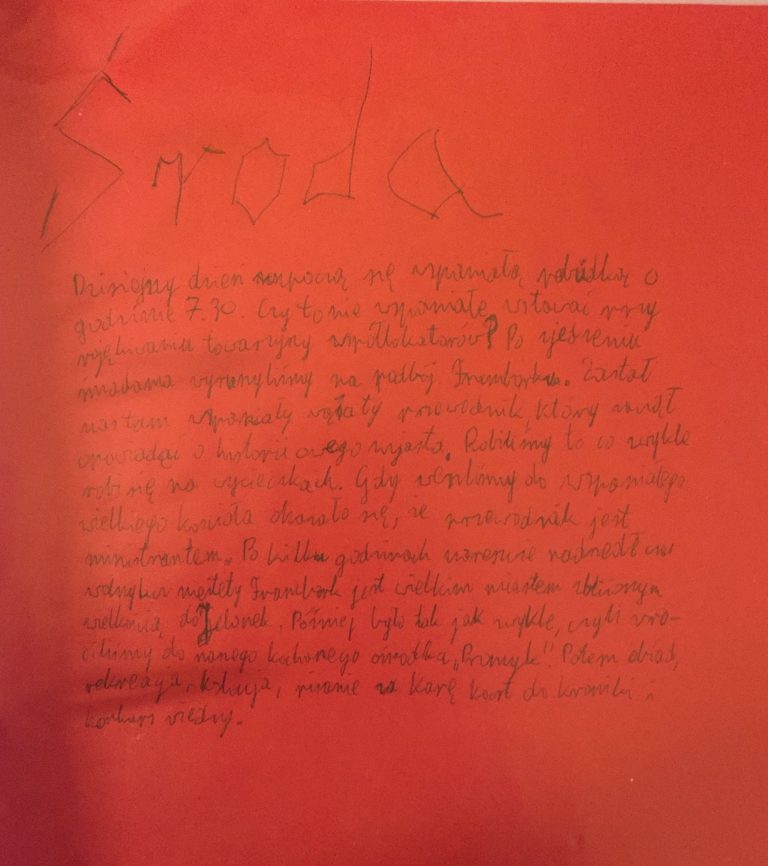 Środa
Dzisiejszy dzień rozpoczą się wspaniałą pobudką o
godzinie 7.30. Czy to nie wspaniałe wstawać przy
towarzyszy współlokatorów? Po zjedzeniu
śniadania wyruszyliśmy na podbój Fromborka. Zastał
nas tam wspaniały wąsaty przewodnik, który zaczął
opowiadać o historii owego mjasta. Robiliśmy to co zwykle
robi się na wycieczkach. Gdy weszliśmy do wspaniałego
wielkiego kościoła okazało się, że przewodnik jest
ministrantem. Po kilku godzinach nareszcie nadszedł czas
wolny lecz niestety Frombork jest wielkim miastem zbliżonym
wielkością do Jelonek. Później było tak jak zwykle, czyli wró-
ciliśmy do naszego kochanego ośrodka „Promyk". Potem obiad,
rekreacja, kolacja, pisanie za karę kart do kroniki i
konkurs wiedzy.